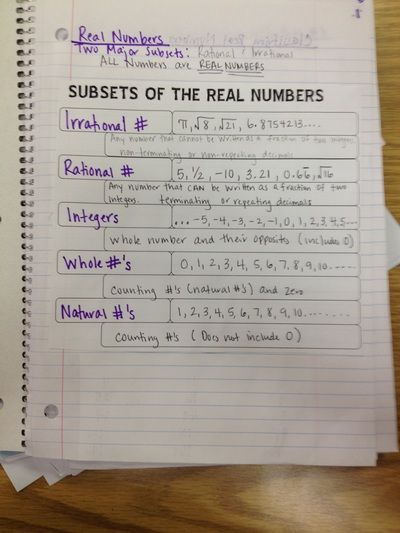 Real Numbers
Two Major Subsets: Rational / Irrational
ALL Numbers are REAL NUMBERS
SUBSETS OF THE REAL NUMBERS
Irrational #
π, √8, √21, 6.8754213....
Any number that cannot be written as a fraction of two integers
non-terminating or non-repeating decimals
Rational #
5, 1/2, -10, 3.21, 0.66, √16
Any number that CAN be written as a fraction of two
integers. terminating or repeating decimals
Integers
... -5, -4, -3, -2, -1, 0, 1, 2, 3, 4, 5...
whole number and their opposites (includes 0)
Whole #'s
0, 1, 2, 3, 4, 5, 6, 7, 8, 9, 10......
counting #'s (natural #'s) and zero
Natural #'s
1, 2, 3, 4, 5, 6, 7, 8, 9, 10........
counting #'s (Does not include 0)